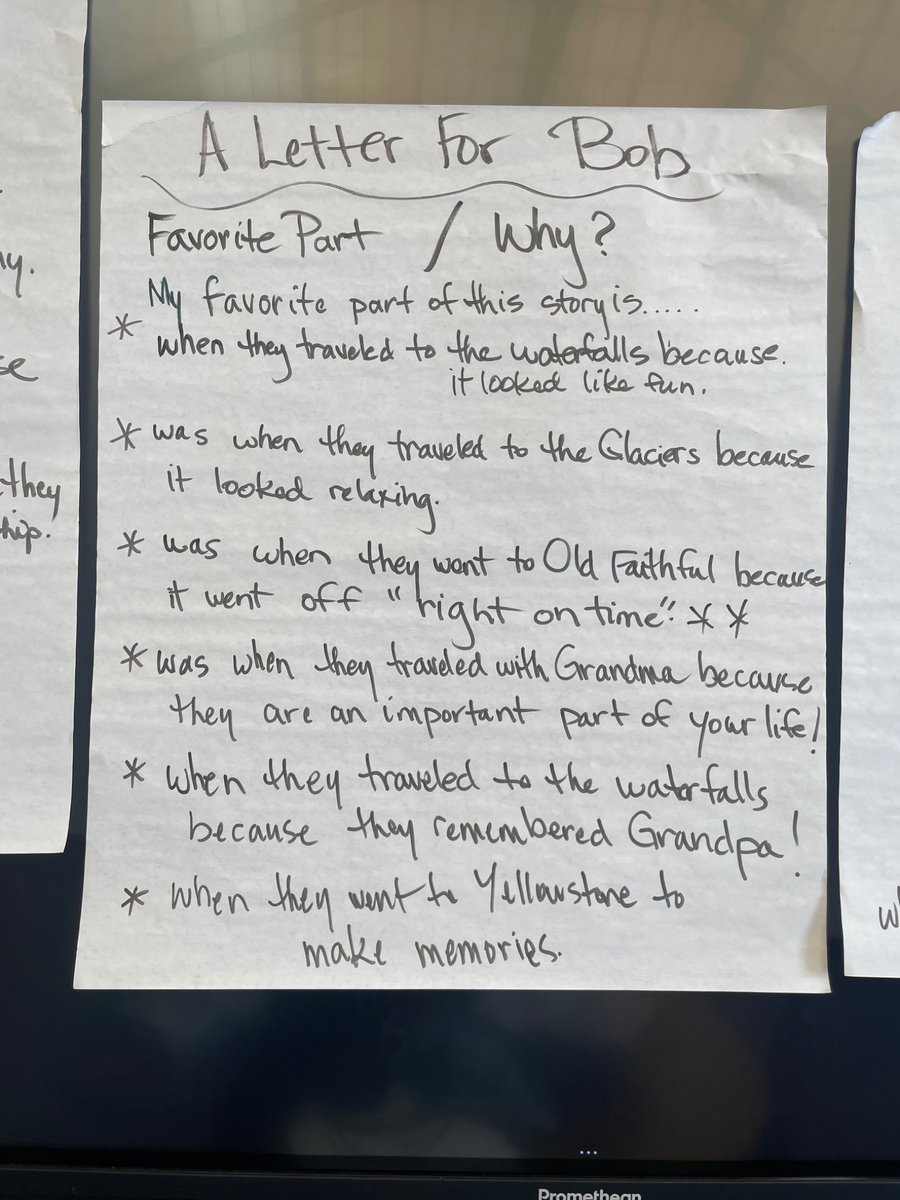 A Letter For Bob
Favorite Part / Why?
My favorite part of this story is.....
* when they traveled to the waterfalls because.
it looked like fun.
* was when they traveled to the Glaciers because
it looked relaxing.
* was when they went to Old Faithful because
it went off "right on time". * *
* was when they traveled with Grandma because
they are an important part of your life!
* when they traveled to the waterfalls
because they remembered Grandpa!
* when they went to Yellowstone to
make memories.
they
Promethean